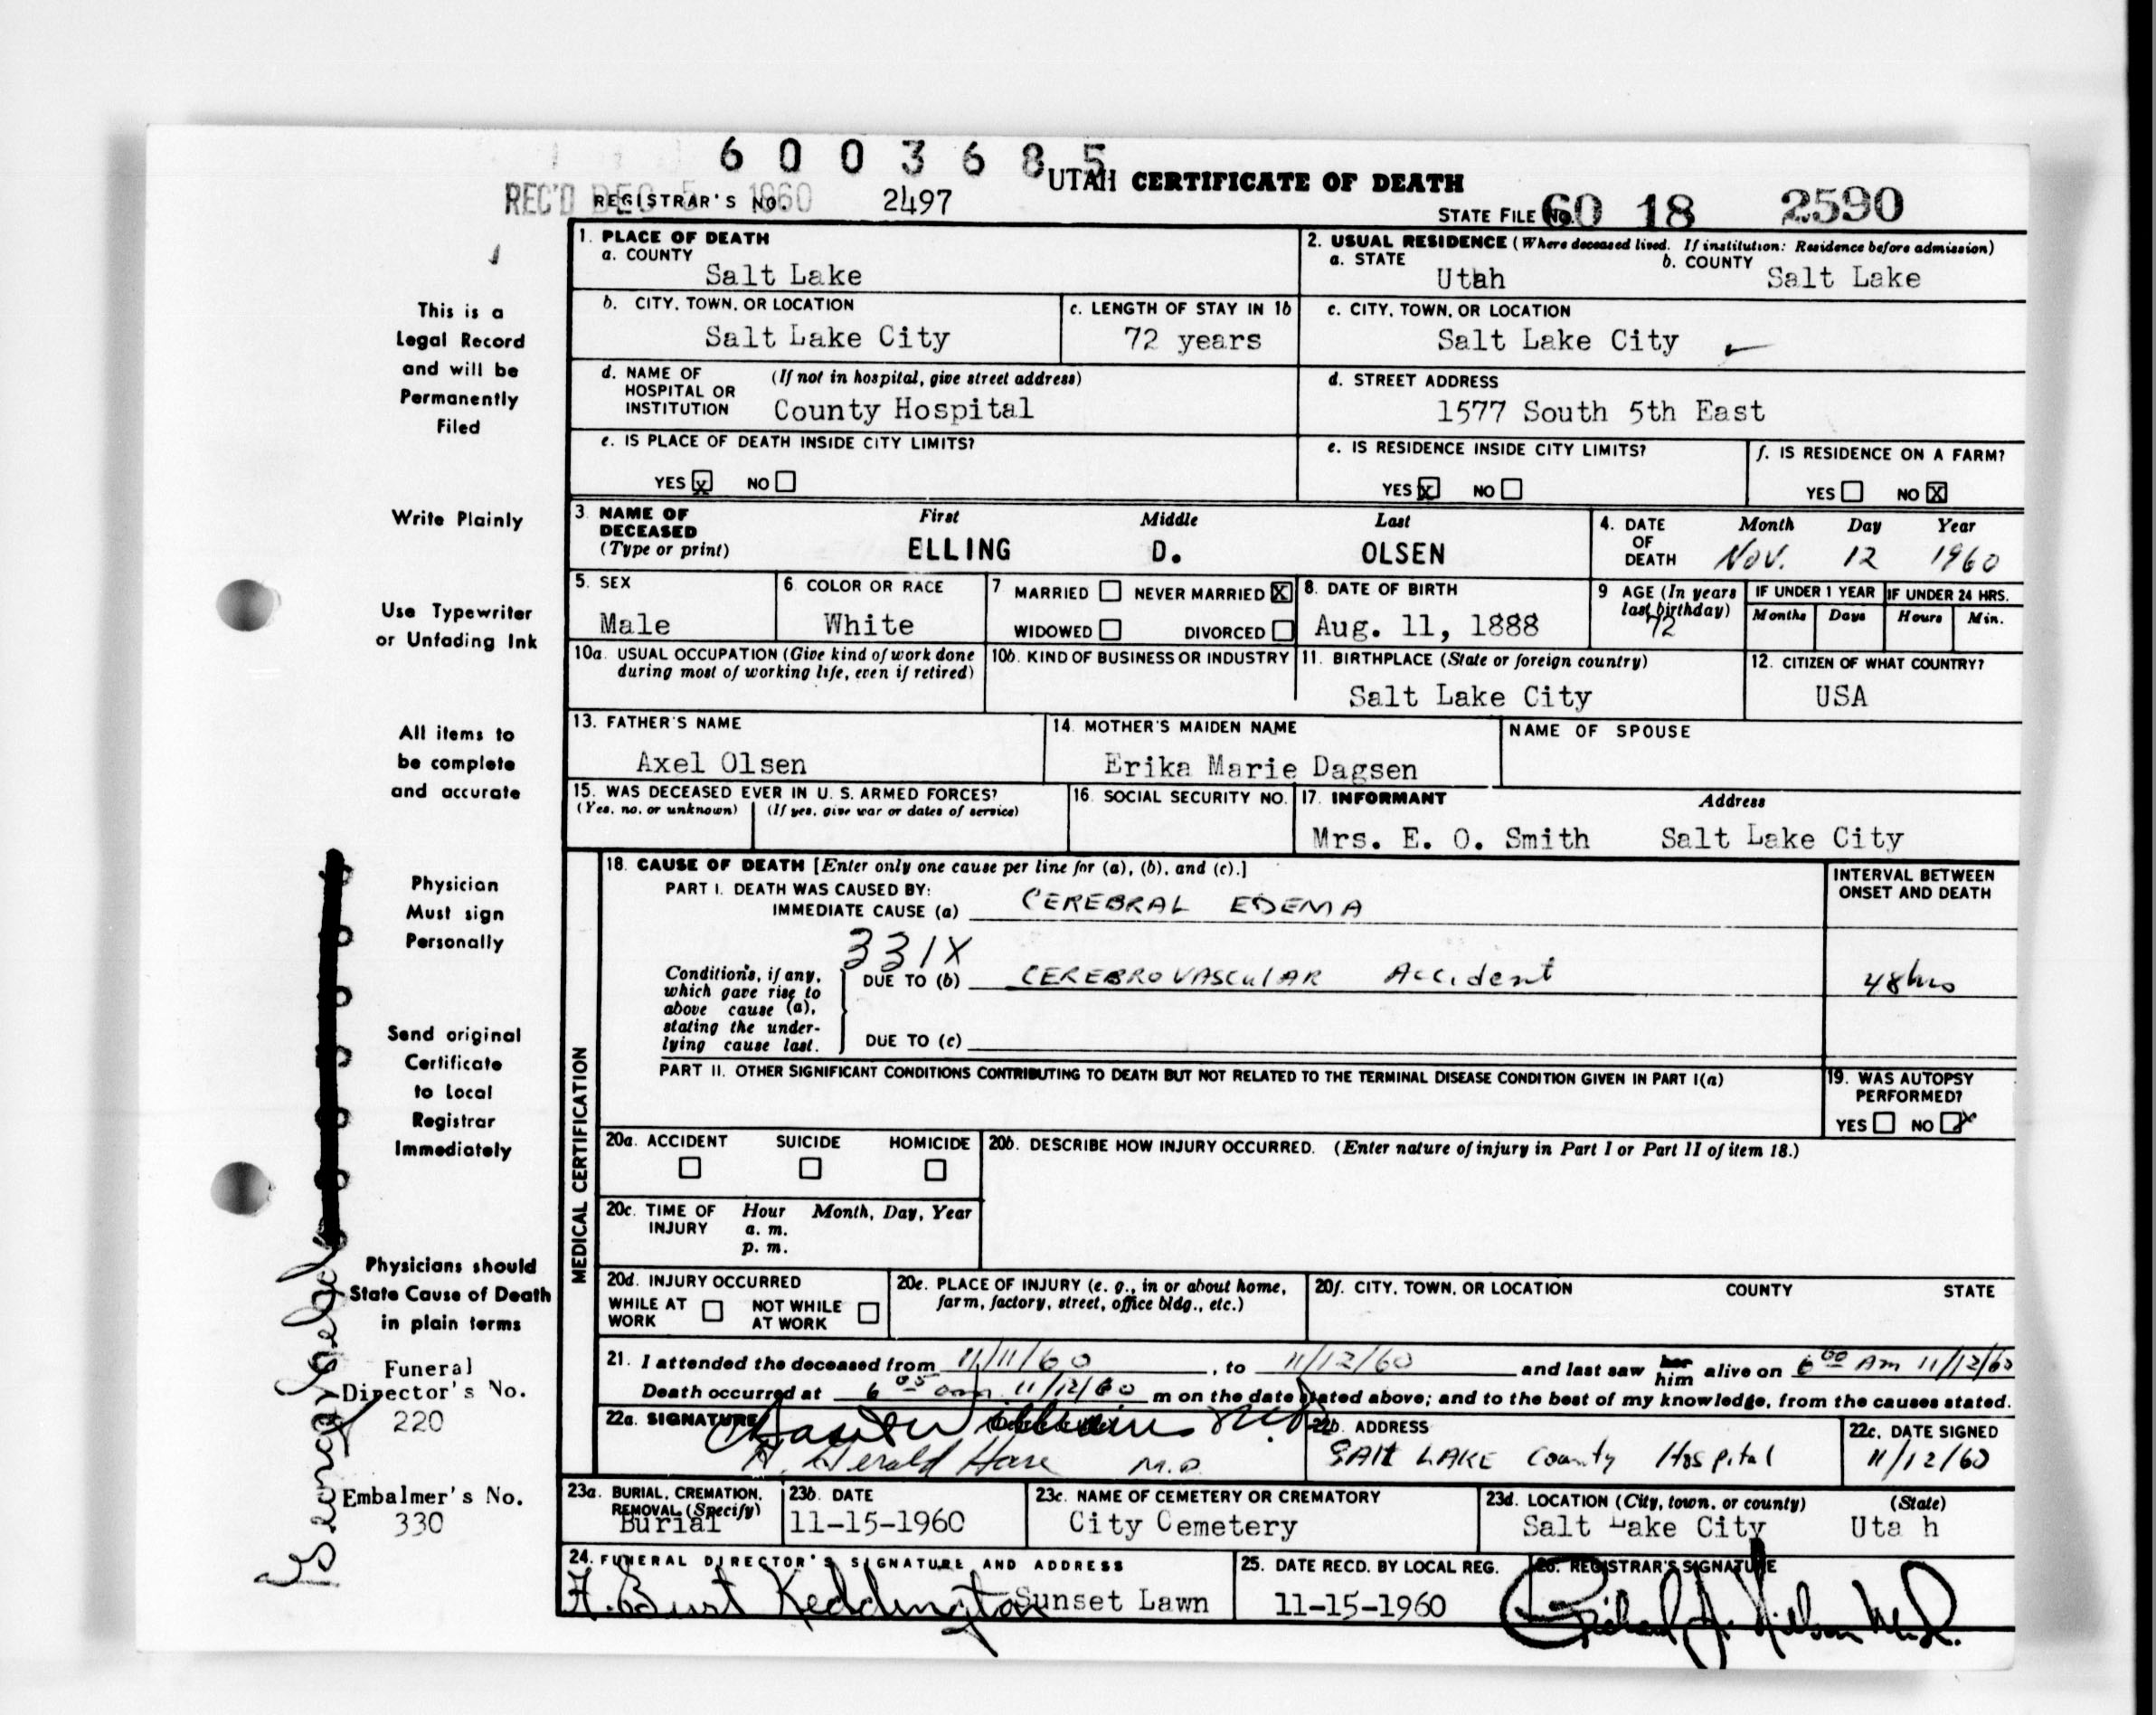 6003685
UTAH CERTIFICATE OF DEATH
REC'D DEC 5 1960
REGISTRAR'S NO. 2497
STATE FILE NO. 60 18 2590
This is a
Legal Record
and will be
Permanently
Filed
Write Plainly
Use Typewriter
or Unfading Ink
All items to
be complete
and accurate
Physician
Must sign
Personally
Send original
Certificate
to Local
Registrar
Immediately
Physicians should
State Cause of Death
in plain terms
Funeral
Director's No.
220
Embalmer's No.
330
1. PLACE OF DEATH
a. COUNTY
Salt Lake
2. USUAL RESIDENCE (Where deceased lived. If institution: Residence before admission)
a. STATE
Utah
b. COUNTY
Salt Lake
b. CITY, TOWN, OR LOCATION
Salt Lake City
c. LENGTH OF STAY IN 1b
72 years
c. CITY, TOWN, OR LOCATION
Salt Lake City
d. NAME OF (If not in hospital, give street address)
HOSPITAL OR
INSTITUTION County Hospital
d. STREET ADDRESS
1577 South 5th East
e. IS PLACE OF DEATH INSIDE CITY LIMITS?
YES x NO
e. IS RESIDENCE INSIDE CITY LIMITS?
YES x NO
f. IS RESIDENCE ON A FARM?
YES NO X
3. NAME OF
DECEASED
(Type or print)
First Middle Last
ELLING D. OLSEN
4. DATE
OF
DEATH
Month Day Year
Nov. 12 1960
5. SEX
Male
6. COLOR OR RACE
White
7 MARRIED NEVER MARRIED X
WIDOWED DIVORCED
8. DATE OF BIRTH
Aug. 11, 1888
9 AGE (In years
last birthday)
72
IF UNDER 1 YEAR
Months Days
IF UNDER 24 HRS.
Hours Min.
10a. USUAL OCCUPATION (Give kind of work done
during most of working life, even if retired)
10b. KIND OF BUSINESS OR INDUSTRY
11. BIRTHPLACE (State or foreign country)
Salt Lake City
12. CITIZEN OF WHAT COUNTRY?
USA
13. FATHER'S NAME
Axel Olsen
14. MOTHER'S MAIDEN NAME
Erika Marie Dagsen
NAME OF SPOUSE
15. WAS DECEASED EVER IN U. S. ARMED FORCES?
(Yes, no, or unknown) (If yes, give war or dates of service)
16. SOCIAL SECURITY NO.
17. INFORMANT Address
Mrs. E. O. Smith Salt Lake City
MEDICAL CERTIFICATION
18. CAUSE OF DEATH [Enter only one cause per line for (a), (b), and (c).]
PART I. DEATH WAS CAUSED BY:
IMMEDIATE CAUSE (a) CEREBRAL EDEMA
INTERVAL BETWEEN
ONSET AND DEATH
331X
Conditions, if any,
which gave rise to
above cause (a),
stating the under-
lying cause last.
DUE TO (b) CEREBROVASCULAR Accident
48 hrs
DUE TO (c)
PART II. OTHER SIGNIFICANT CONDITIONS CONTRIBUTING TO DEATH BUT NOT RELATED TO THE TERMINAL DISEASE CONDITION GIVEN IN PART I(a)
19. WAS AUTOPSY
PERFORMED?
YES NO x
20a. ACCIDENT SUICIDE HOMICIDE
20b. DESCRIBE HOW INJURY OCCURRED. (Enter nature of injury in Part I or Part II of item 18.)
20c. TIME OF Hour Month, Day, Year
INJURY a. m.
p. m.
20d. INJURY OCCURRED
WHILE AT NOT WHILE
WORK AT WORK
20e. PLACE OF INJURY (e. g., in or about home,
farm, factory, street, office bldg., etc.)
20f. CITY, TOWN, OR LOCATION COUNTY STATE
21. I attended the deceased from 11/11/60, to 11/12/60 and last saw her him alive on 6 00 Am 11/12/60
Death occurred at 6 05 am 11/12/60 m on the date stated above; and to the best of my knowledge, from the causes stated.
22a. SIGNATURE
M.D.
H. Gerald Hare M.D.
22b. ADDRESS
SALT LAKE County Hospital
22c. DATE SIGNED
11/12/60
23a. BURIAL, CREMATION,
REMOVAL (Specify)
Burial
23b. DATE
11-15-1960
23c. NAME OF CEMETERY OR CREMATORY
City Cemetery
23d. LOCATION (City, town, or county) (State)
Salt Lake City Uta h
24. FUNERAL DIRECTOR'S SIGNATURE AND ADDRESS
Keddington Sunset Lawn
25. DATE RECD. BY LOCAL REG.
11-15-1960
26. REGISTRAR'S SIGNATURE